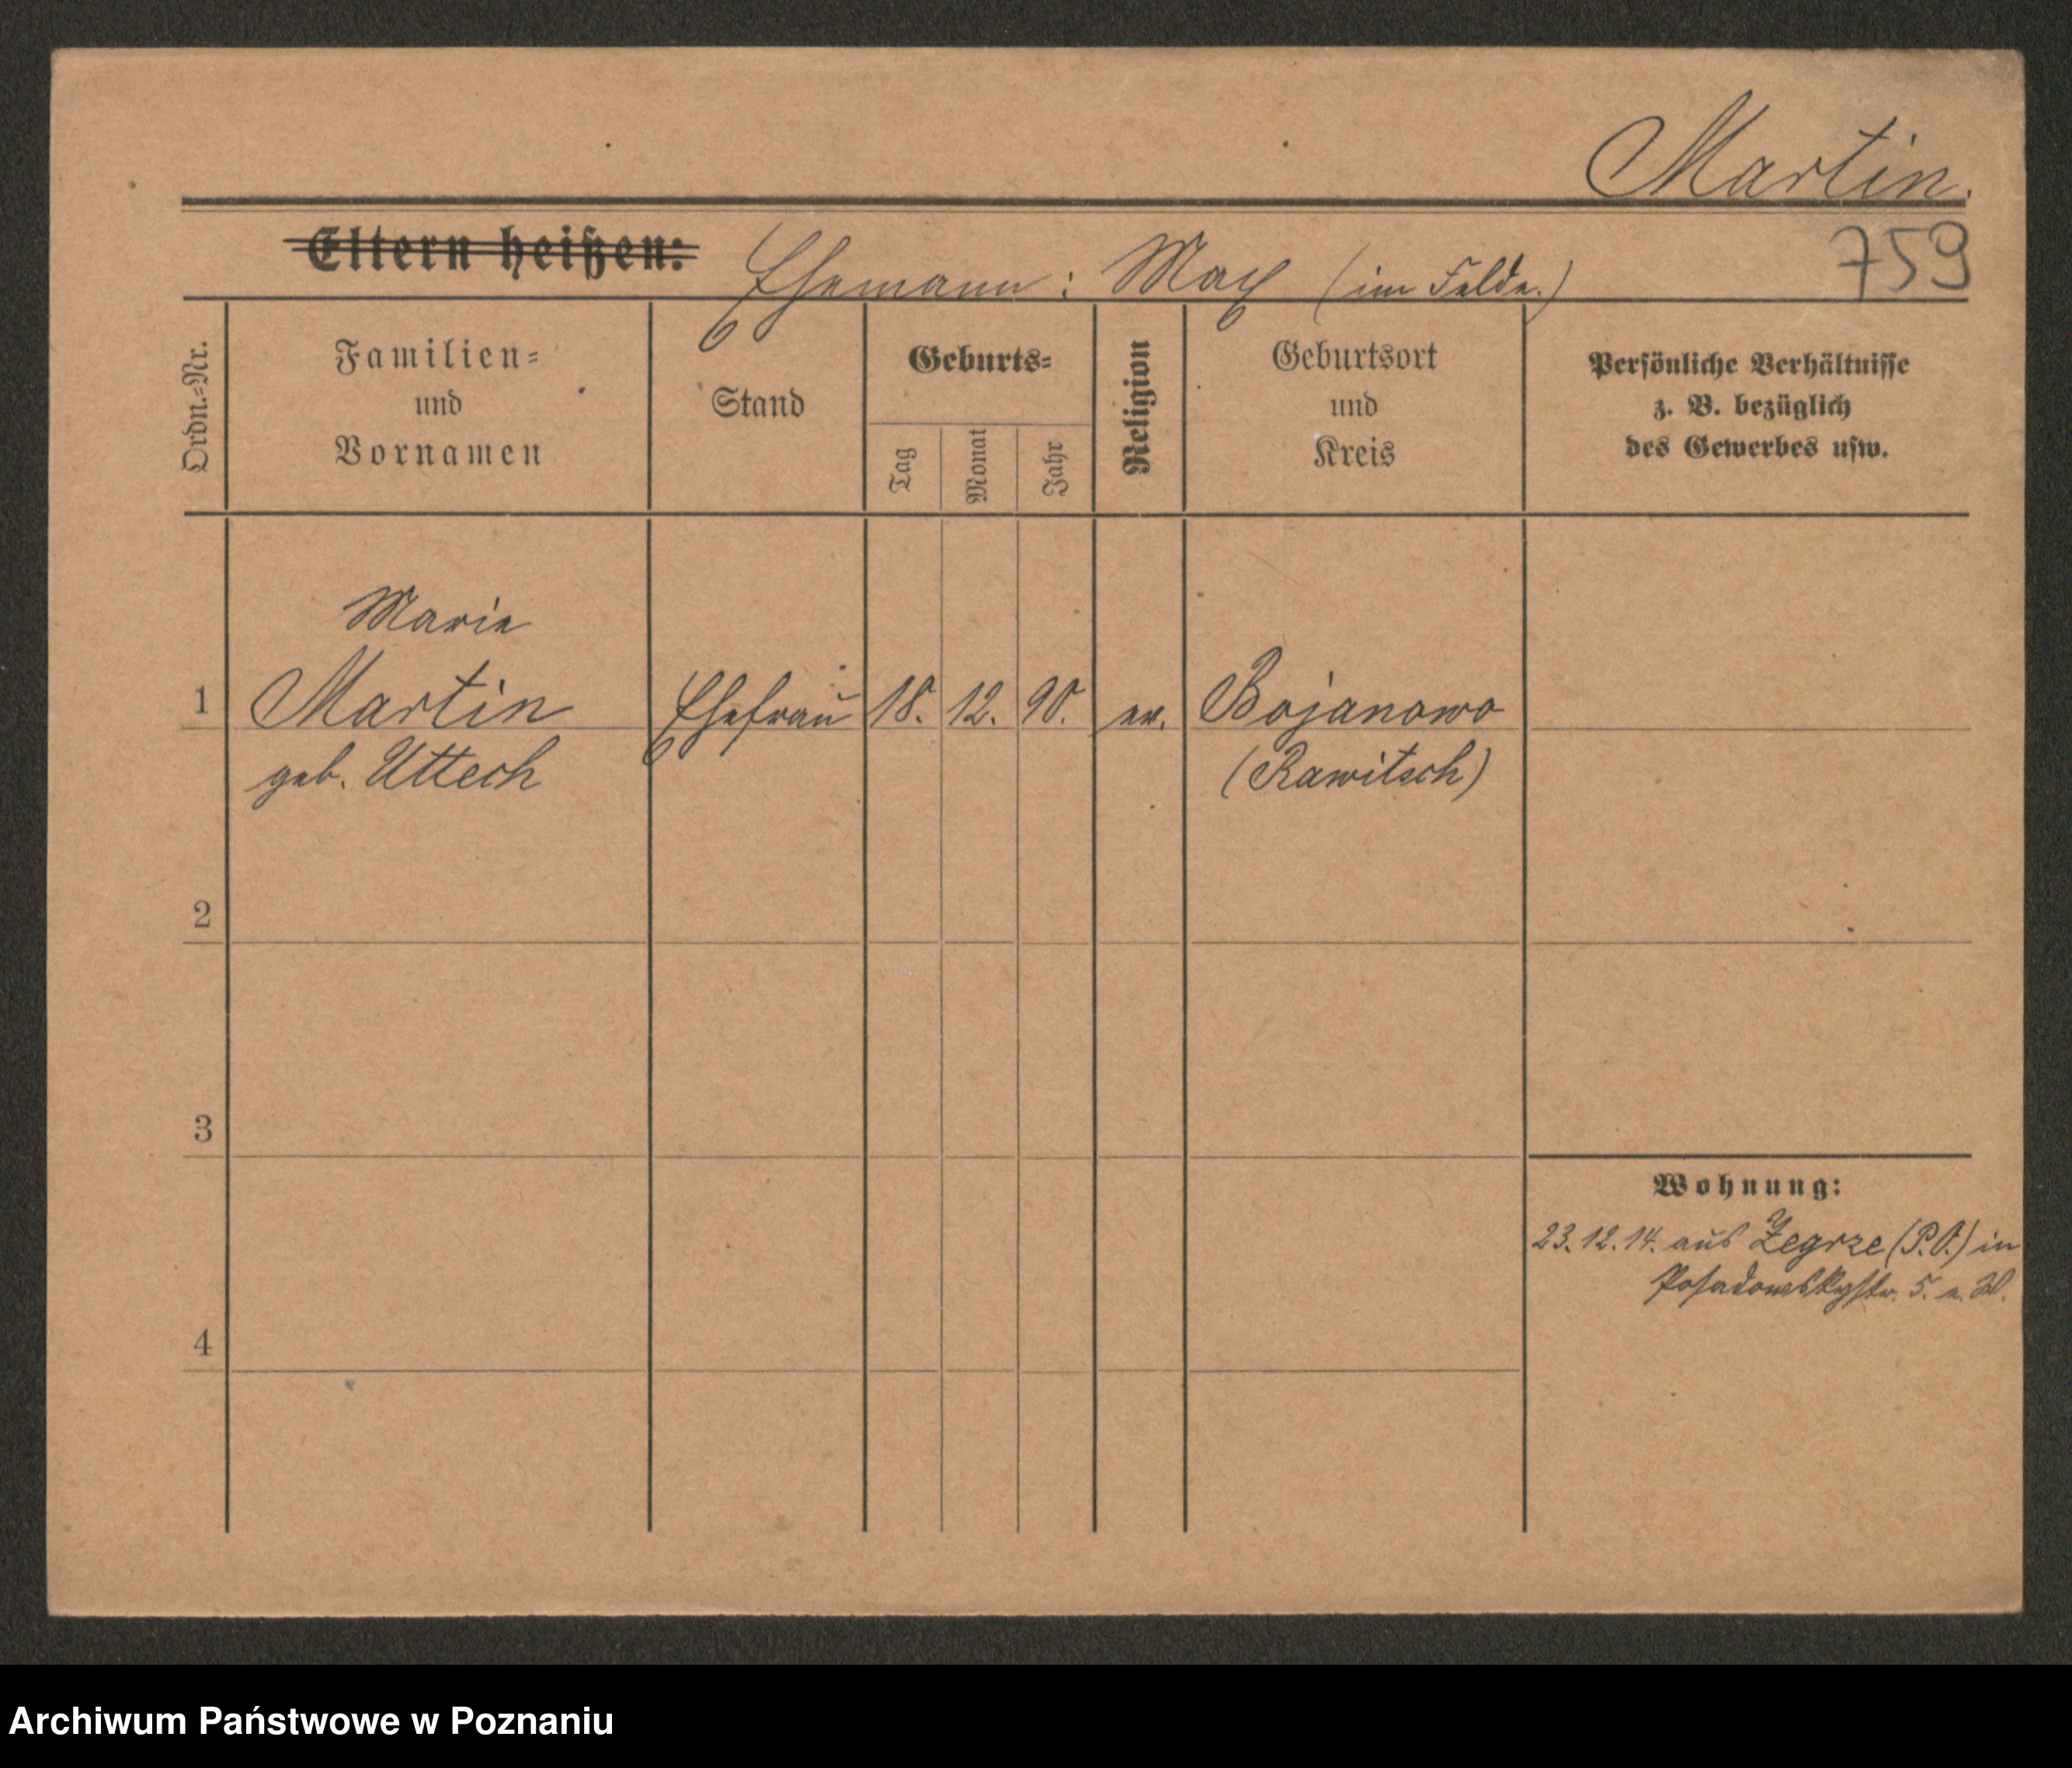 Martin.
759
Eltern heißen: Ehemann: Max (im Felde.)
Ordn.=Nr.
Familien=
und
Vornamen
Stand
Geburts=
Tag
Monat
Jahr
Religion
Geburtsort
und
Kreis
Persönliche Verhältnisse
z. B. bezüglich
des Gewerbes usw.
Marie
1 Martin Ehefrau 18. 12. 90. ev. Bojanowo
geb. Uttech (Rawitsch)
2
3
Wohnung:
23.12.14. aus Zegrze (P.O.) in
Posadowskystr. 5.
4
Archiwum Państwowe w Poznaniu